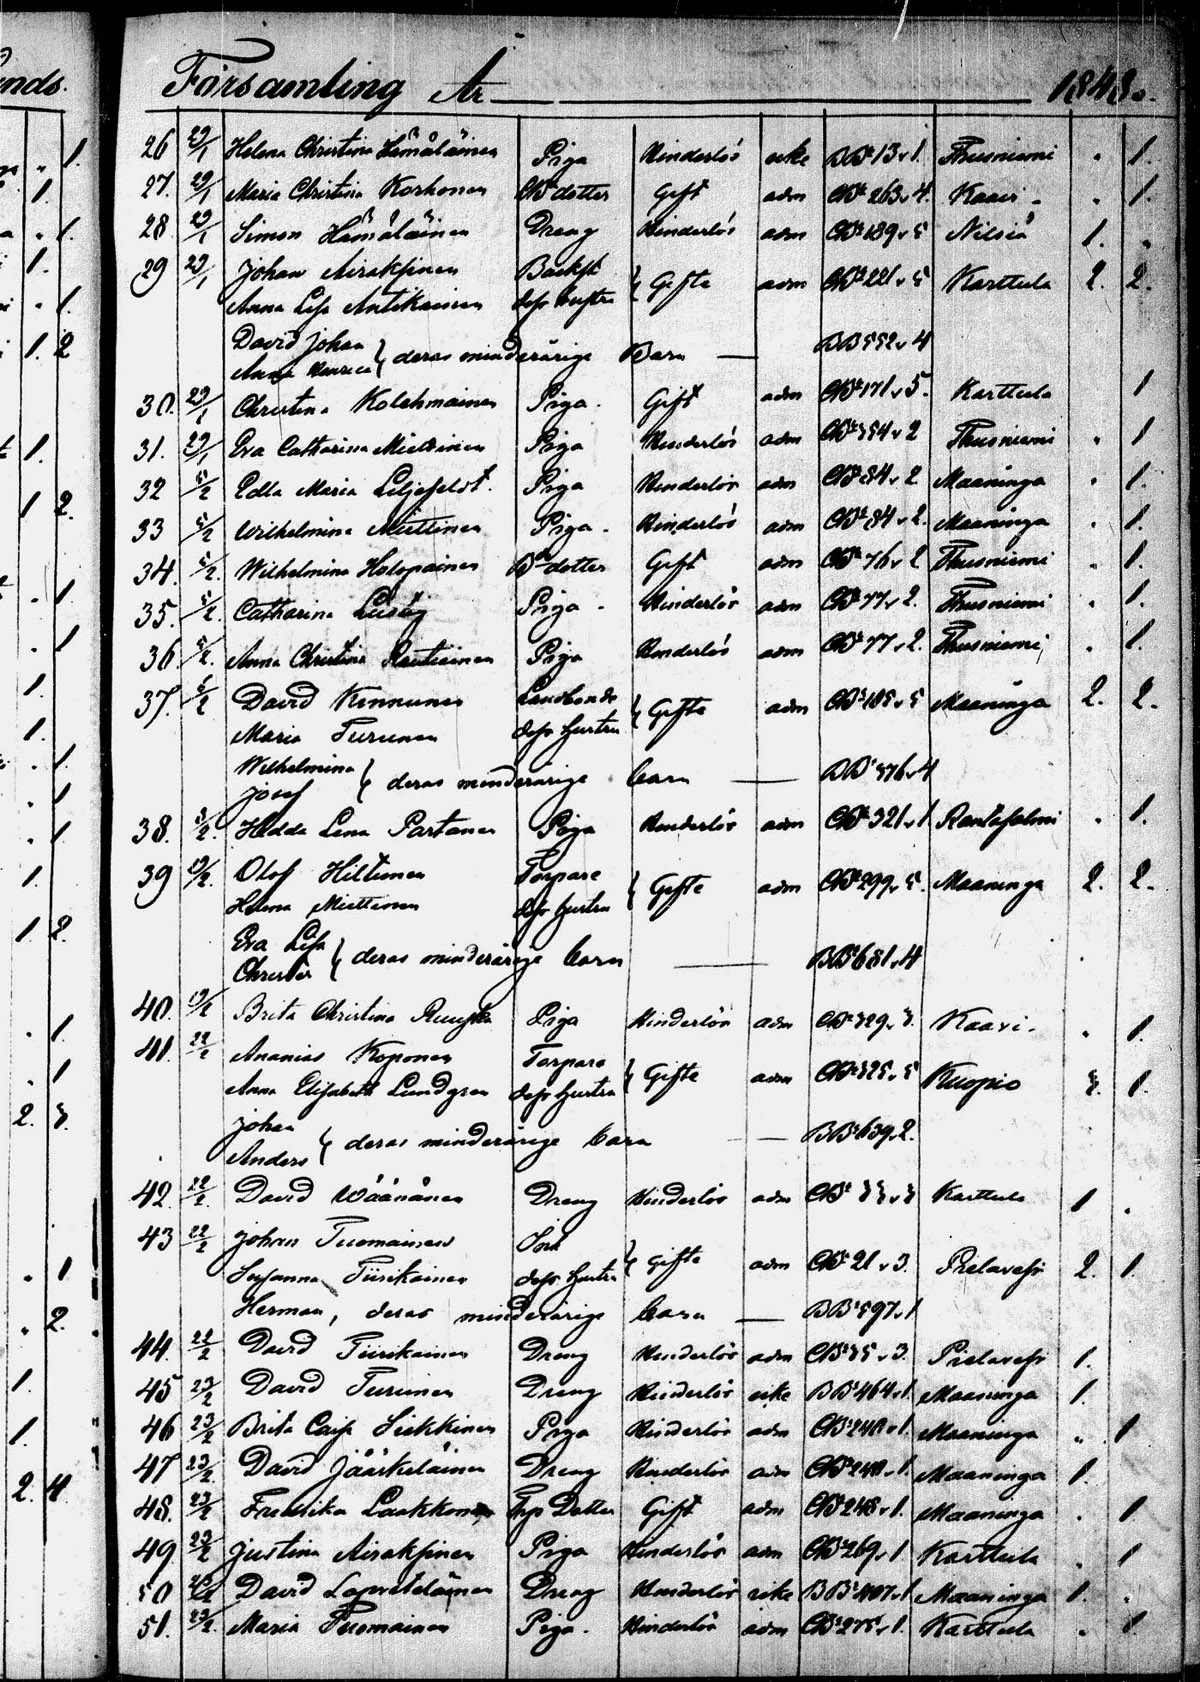 Församling År 1848.
26 29/1 Helena Christina Hämäläinen Piga Hinderlös icke BB 13 v 1. Thusniemi . 1.
27. 29/1 Maria Christina Korhonen dotter Gift adm CB 263 v 4. Kaavi . 1.
28. 29/1 Simon Hämäläinen Dreng Hinderlös adm CB 189 v 5 Nilsiä 1. .
29 29/1 Johan Airaksinen
Anna Lisa Antikainen dess hustru } Gifte adm CB 221 v 5 Karttula 2. 2.
David Johan
Anna Henrica } deras minderårige Barn — BB 552 v 4
30. 29/1 Christina Kolehmainen Piga. Gift adm CB 171 v 5. Karttula 1
31. 29/1 Eva Catharina Miettinen Piga Hinderlös adm CB 354 v 2 Thusniemi . 1.
32 5/2 Edla Maria Liljefeldt. Piga Hinderlös adm CB 84 v 2 Maaninga . 1.
33 5/2 Wilhelmina Miettinen Piga. Hinderlös adm CB 84 v 2. Maaninga . 1.
34. 5/2. Wilhelmina Holopainen dotter Gift adm CB 76 v 2 Thusniemi . 1.
35. 5/2. Catharina Piga. Hinderlös adm CB 77 v 2. Thusniemi . 1.
36 5/2. Anna Christina Rautiainen Piga Hinderlös adm CB 77 v 2. Thusniemi . 1.
37. 5/2 David Kinnunen Landbonde
Maria Turunen dess hustru } Gifte adm CB 185 v 5 Maaninga 2. 2.
Wilhelmina
Josef } deras minderårige barn — BB 576 v 4
38. 5/2. Hedda Lena Partanen Piga Hinderlös adm CB 321 v 1. Rantasalmi . 1.
39 19/2. Olof Hiltunen Torpare
Helena Miettinen dess hustru } Gifte adm CB 299 v 5. Maaninga 2. 2.
Eva Lisa
Christer } deras minderårige barn — BB 681 v 4
40. 19/2 Brita Christina Piga Hinderlös adm CB 329 v 3. Kaavi. . 1.
41. 22/2 Ananias Koponen Torpare
Anna Elisabeth Lundgren dess hustru } Gifte adm CB 325 v 5 Kuopio 3. 1.
Johan
Anders } deras minderårige barn — BB 639 v 2.
42. 22/2 David Wäänänen Dreng Hinderlös adm CB 33 v 3 Karttula 1 .
43 22/2 Johan Tuomainen
Susanna Tiirikainen dess hustru } Gifte adm CB 21 v 3. Pielavesi 2. 1.
Herman, deras minderårige barn — BB 597 v 1
44. 22/2 David Tiirikainen Dreng Hinderlös adm CB 35 v 3. Pielavesi 1.
45 23/2 David Turunen Dreng Hinderlös icke BB 464 v 1. Maaninga 1.
46 23/2 Brita Caisa Sikkinen Piga Hinderlös adm CB 240 v 1. Maaninga . 1
47 23/2 David Jääskeläinen Dreng Hinderlös adm CB 240 v 1. Maaninga 1.
48. 23/2 Fredrika Laakkonen Dotter Gift adm CB 248 v 1. Maaninga . 1.
49 23/2 Justina Airaksinen Piga Hinderlös adm CB 269 v 1 Karttula . 1
50 David Lapveteläinen Dreng Hinderlös icke BB 407 v 1 Maaninga 1. .
51. 23/2. Maria Tuomainen Piga. Hinderlös adm CB 275 v 1. Karttula . 1